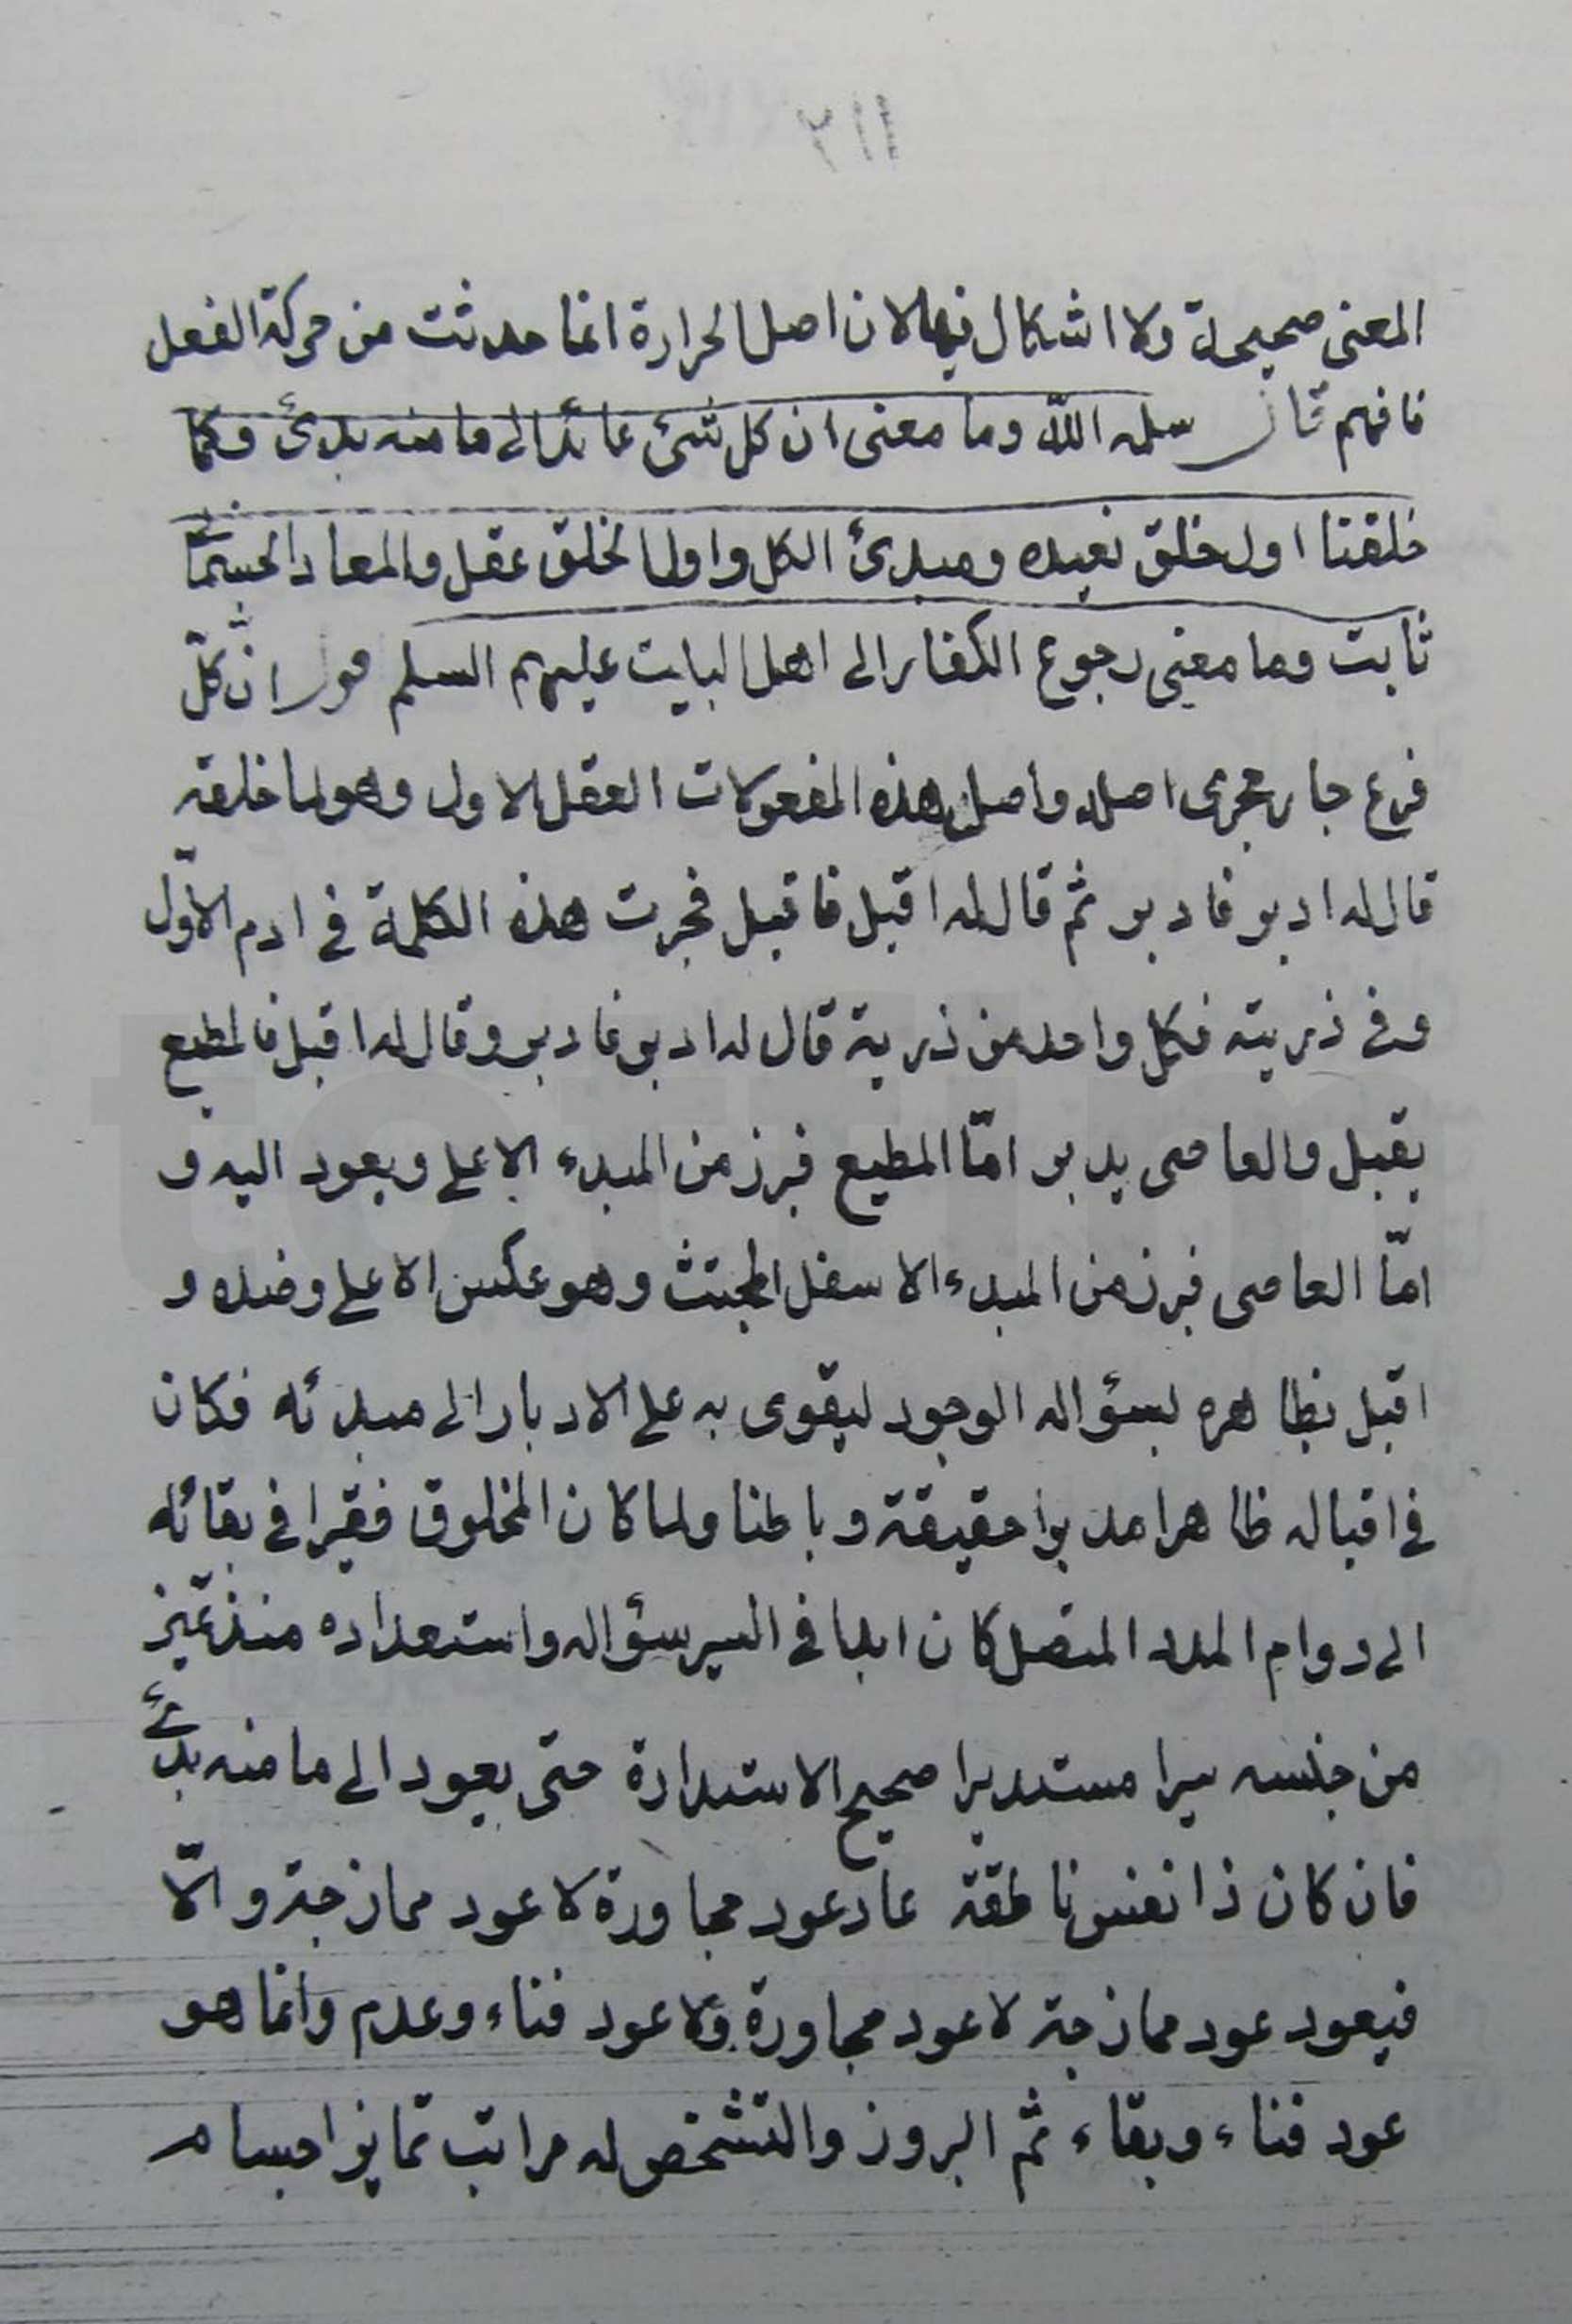 ٢١١
المعنى صحيحة ولا اشكال فيها لان اصل الحرارة انما حدثت من حركة الفعل
فافهم قال سلمه اللّه وما معنى ان كل شئ عائد الى ما منه بدئ وكما
خلقنا اول خلق نعيده ومبدئ الكل واول الخلق عقل والمعاد الجسمانى
ثابت وما معنى رجوع الكفار الى اهل البايت عليهم السلم اقول ان كلّ
فرع جار مجرى اصله واصل هذه المفعولات العقل الاول وهو لما خلقه
قال له ادبر فادبر ثم قال له اقبل فاقبل فجرت هذه الكلمة فى ادم الاوّل
وفى ذريته فكل واحد من ذرية قال له ادبر فادبر وقال له اقبل فالمطيع
يقبل والعاصى يدبر امّا المطيع فبرز من المبدء الاعلى ويعود اليه و
امّا العاصى فبرز من المبدء الاسفل المجتث وهو عكس الاعلى وضده و
اقبل بظاهره لسؤاله الوجود ليقوى به على الادبار الى مبدئه فكان
فى اقباله ظاهرا مدبرا حقيقة وباطنا ولما كان المخلوق فقيرا فى بقائه
الى دوام المدد المتصل كان ابدا فى السير سؤاله واستعداده منذ تميز
من جنسه سيرا مستديرا صحيح الاستدارة حتى يعود الى ما منه بدئ
فان كان ذا نفس ناطقة عاد عود مجاورة لا عود ممازجة والّا
فيعود عود ممازجة لا عود مجاورة ولا عود فناء وعدم وانما هو
عود فناء وبقاء ثم البروز والتشخص له مراتب تمايز اجسام
totfim